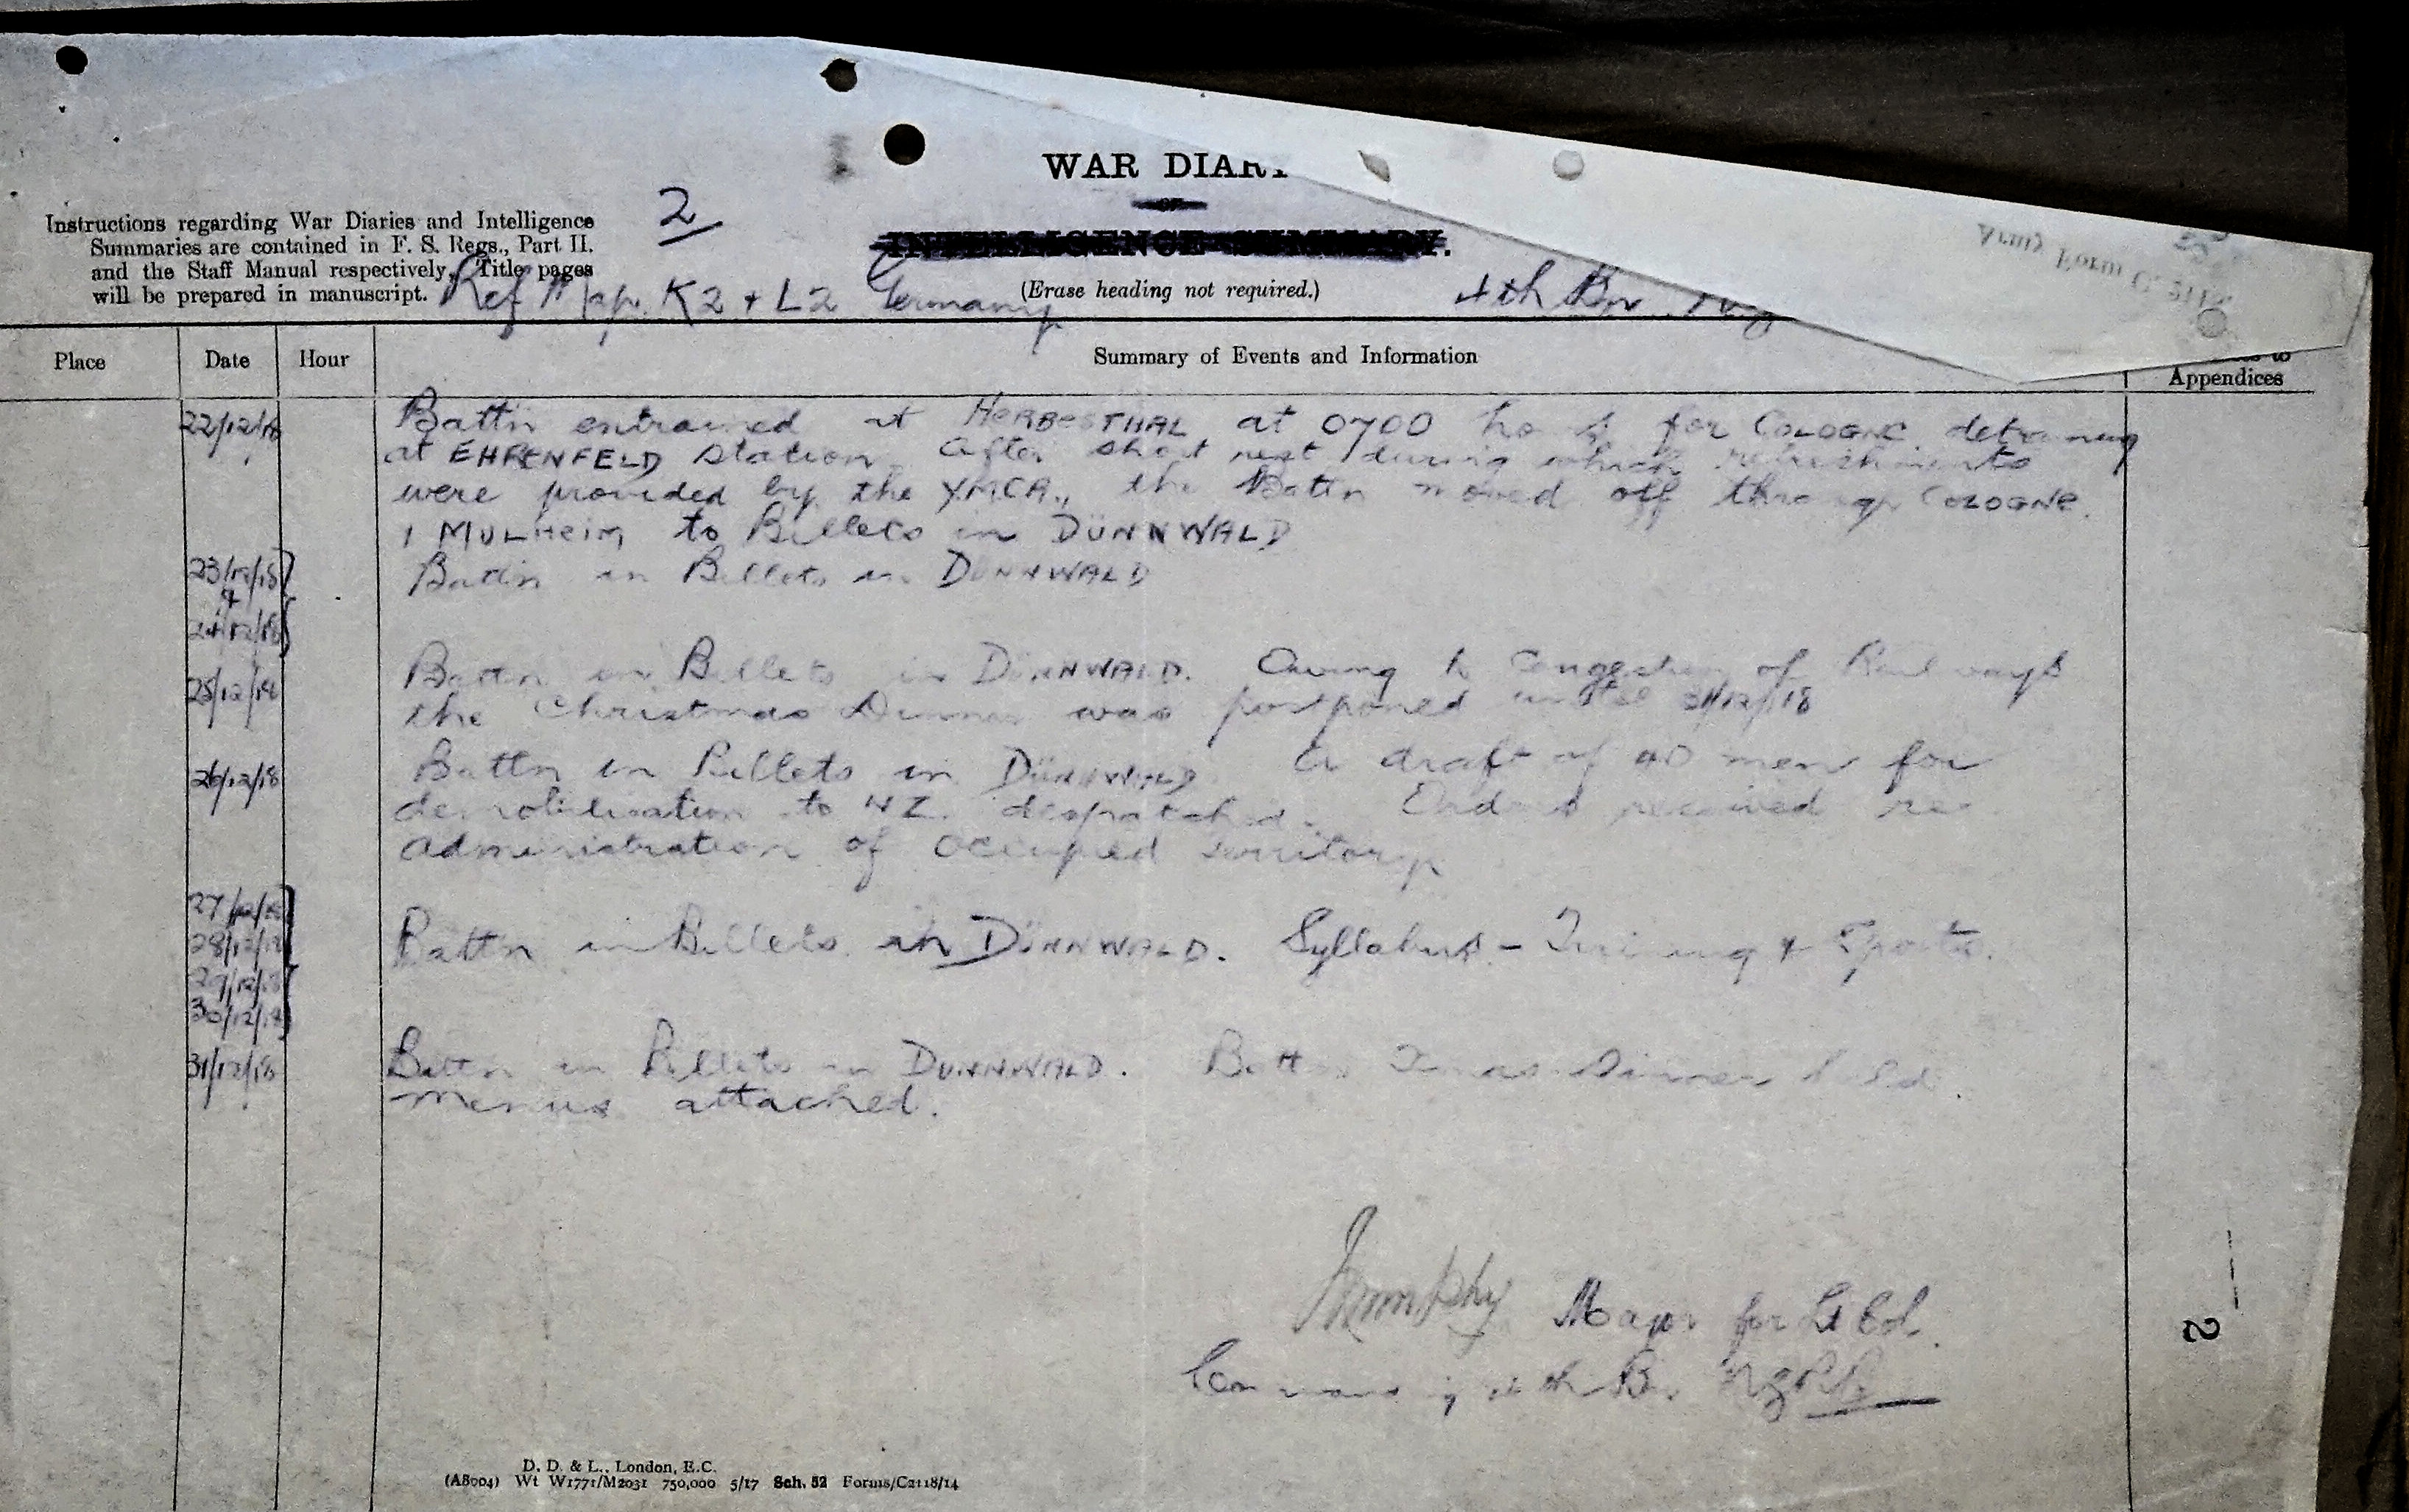 WAR DIARY
OR
INTELLIGENCE SUMMARY.
(Erase heading not required.)
2
Instructions regarding War Diaries and Intelligence
Summaries are contained in F. S. Regs., Part II.
and the Staff Manual respectively. Title pages
will be prepared in manuscript.
Ref Map. K2 + L2 Germany
4th Bn
Army Form C. 2118
Place Date Hour Summary of Events and Information
to
Appendices
22/12/18 Battn entrained at HERBESTHAL at 0700 hours for COLOGNE detraining
at EHRENFELD Station. After short rest during which refreshments
were provided by the YMCA., the Battn moved off through COLOGNE.
MULHEIM to Billets in DÜNNWALD
23/12/18 Battn in Billets in DÜNNWALD
&
24/12/18
25/12/18 Battn in Billets in DÜNNWALD. Owing to Congestion of Railways
the Christmas Dinner was postponed until 31/12/18
26/12/18 Battn in Billets in DÜNNWALD A draft of 40 men for
demobilisation to NZ. despatched. Orders received re
Administration of Occupied territory
27/12/18
28/12/18 Battn in Billets in DÜNNWALD. Syllabus - Training & Sports.
29/12/18
30/12/18
31/12/18 Battn in Billets in DUNNWALD. Battn Xmas Dinner held.
Menus attached.
Murphy Major for Lt Col.
Commanding 4th Bn NZRB
2
D. D. & L., London, E.C.
(A8004) Wt W1771/M2031 750,000 5/17 Sch. 52 Forms/C2118/14